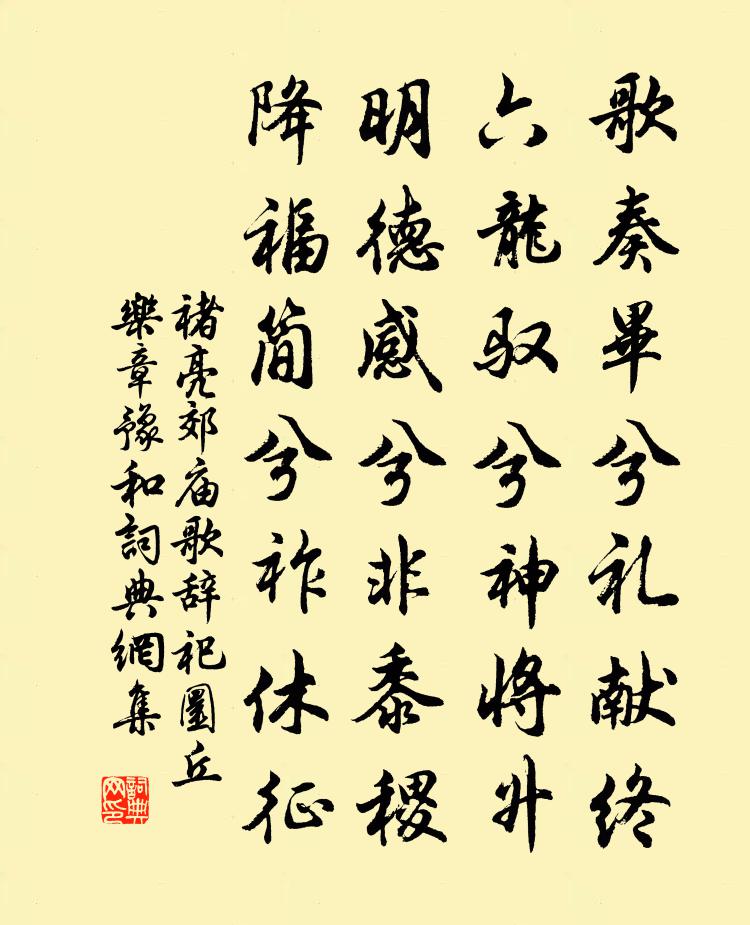 歌奏畢兮礼献终
六龍驭兮神將升
明德感兮非黍稷
降福简兮祚休征
褚亮郊庙歌辞祀圜丘
樂章豫和詞典網集
詞典
网印